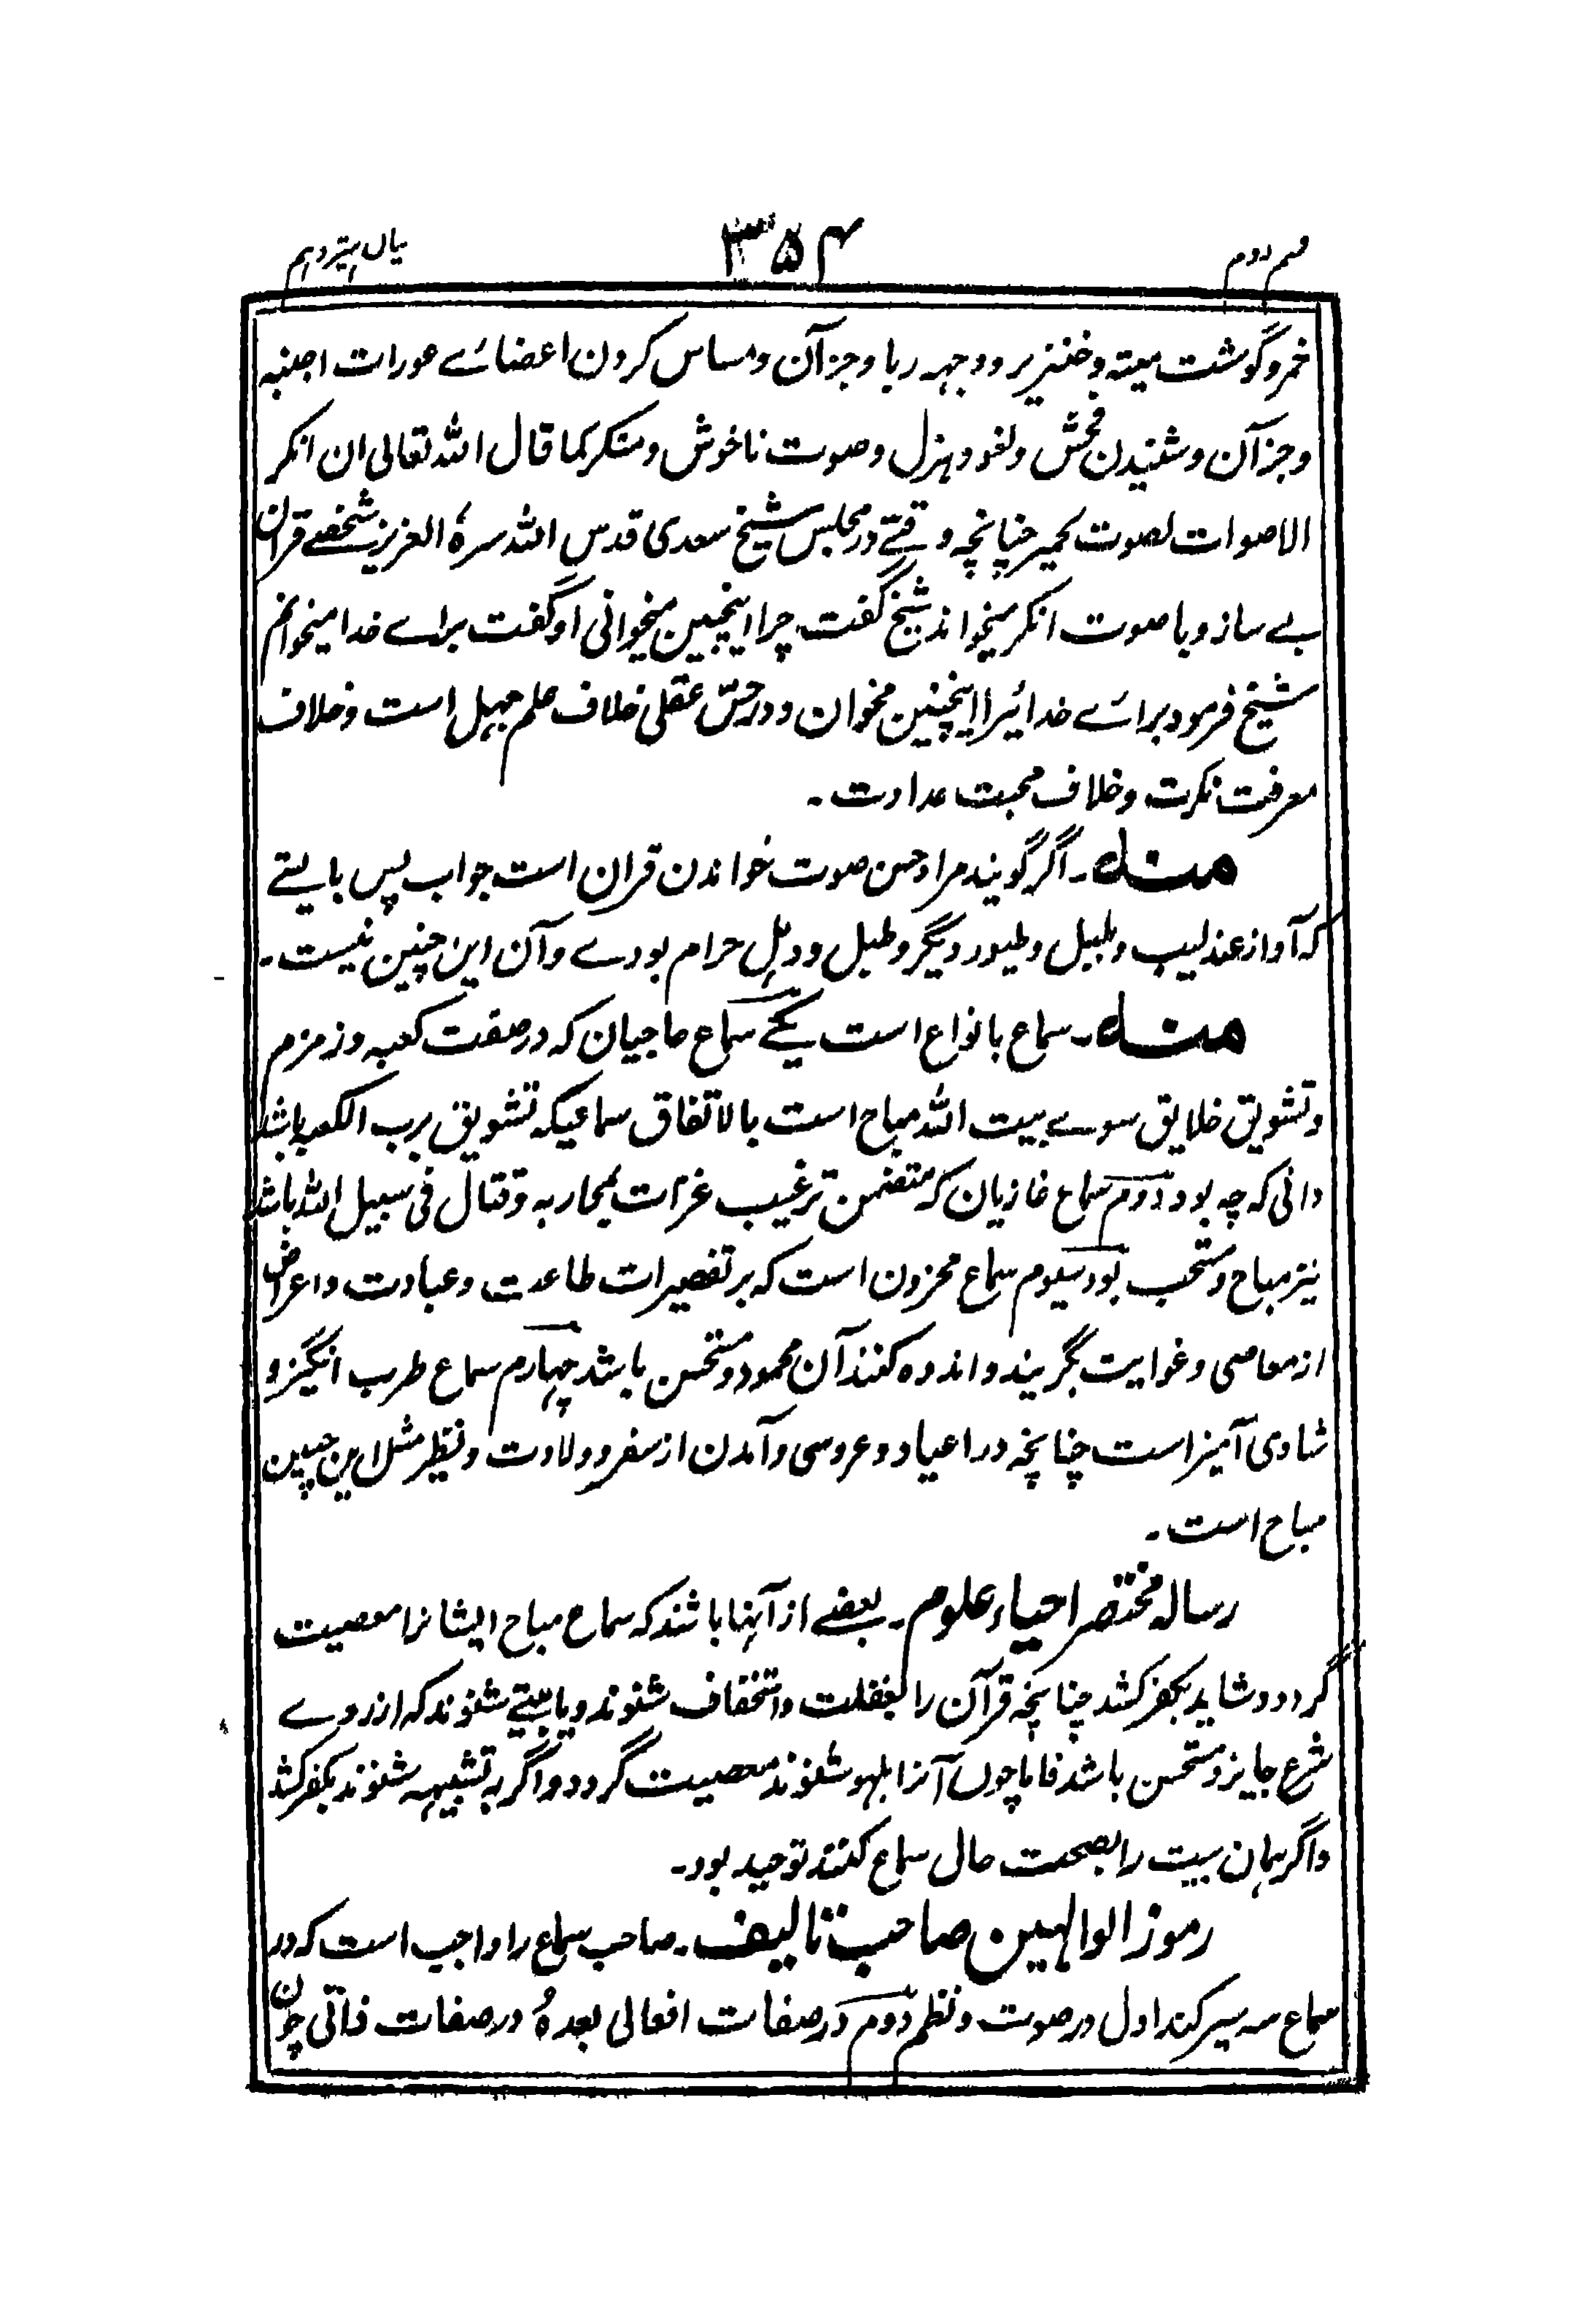 قسم دوم ۳۵۴ بیان هیزدهم
خمر و گوشت میته و خنزیر و وجهہ ربا و جز آن و مساس کردن اعضائے عورات اجنبہ
و جز آن و شنیدن فحش و لغو و ہزل و صوت ناخوش و منکر کما قال اللہ تعالی ان انکر
الاصوات لصوت الحمیر چنانچہ وقتے در مجلس شیخ سعدی قدس اللہ سرہٗ العزیز شخصے قران
بے ساز و با صوت انکر میخواند شیخ گفت چرا اینچنین میخوانی او گفت براے خدا میخوانم
شیخ فرمود برائے خدائیرا اینچنین مخوان و در حسّ عقلی خلاف علم جہل است و خلاف
معرفت نکرت و خلاف محبت عداوت ۔
منہ ۔ اگر گویند مراد حسن صوت خواندن قران است جواب پس بایستے
کہ آواز عندلیب و بلبل و طیور دیگر و طبل و دہل حرام بودے و آن این چنین نیست ۔
منہ ۔ سماع بانواع است یکے سماع حاجیان کہ در صفت کعبہ و زمزم
و تشویق خلایق سوے بیت اللہ مباح است بالاتفاق سماعیکہ تشویق برب الکعبہ باشد
دانی کہ چہ بود دوم سماع غازیان کہ متضمن ترغیب غزات بمحاربہ و قتال فی سبیل اللہ باشد
نیز مباح و مستحب بود سیوم سماع محزون است کہ بر تقصیرات طاعت و عبادت و اعراض
از معاصی و غوایت بگریند و اندوہ کنند آن محمود و مستحسن باشد چہارم سماع طرب انگیز و
شادی آمیز است چنانچہ در اعیاد و عروسی و آمدن از سفر و ولادت و نظیر مثل این چنین
مباح است ۔
رسالہ مختصر احیاء علوم ۔ بعضے از آنہا باشند کہ سماع مباح ایشانرا معصیت
گردد و شاید بکفر کشد چنانچہ قرآن را بغفلت و استخفاف شنوند و یا بیتے شنوند کہ از روے
شرع جایز و مستحسن باشد فاما چوں آنرا بلہو شنوند معصیت گردد و اگر بہ تشبیہہ شنوند بکفر کشد
و اگر ہمان بیت را بصحت حال سماع کنند توحید بود ۔
رموز الوالہین صاحب تالیف ۔ صاحب سماع را واجب است کہ در
سماع سہ سیر کند اول در صوت و نظم دوم در صفات افعالی بعدہٗ در صفات ذاتی چون